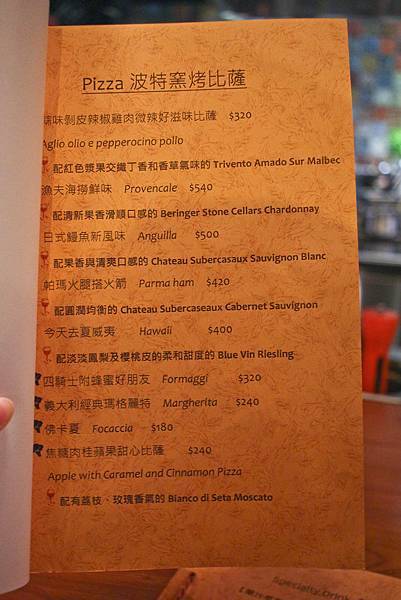 Pizza 波特窯烤比薩
味剝皮辣椒雞肉微辣好滋味比薩 $320
Aglio olio e pepperocino pollo
配紅色漿果交織丁香和香草氣味的 Trivento Amado Sur Malbec
漁夫海撈鮮味 Provencale $540
配清新果香滑順口感的 Beringer Stone Cellars Chardonnay
日式鰻魚新風味 Anguilla $500
配果香與清爽口感的 Chateau Subercasaux Sauvignon Blanc
帕瑪火腿搭火箭 Parma ham $420
配圓潤均衡的 Chateau Subercaseaux Cabernet Sauvignon
今天去夏威夷 Hawaii $400
配淡淡鳳梨及櫻桃皮的柔和甜度的 Blue Vin Riesling
四騎士附蜂蜜好朋友 Formaggi $320
義大利經典瑪格麗特 Margherita $240
佛卡夏 Focaccia $180
焦糖肉桂蘋果甜心比薩 $240
Apple with Caramel and Cinnamon Pizza
配有荔枝、玫瑰香氣的 Bianco di Seta Moscato
Specialty Drink